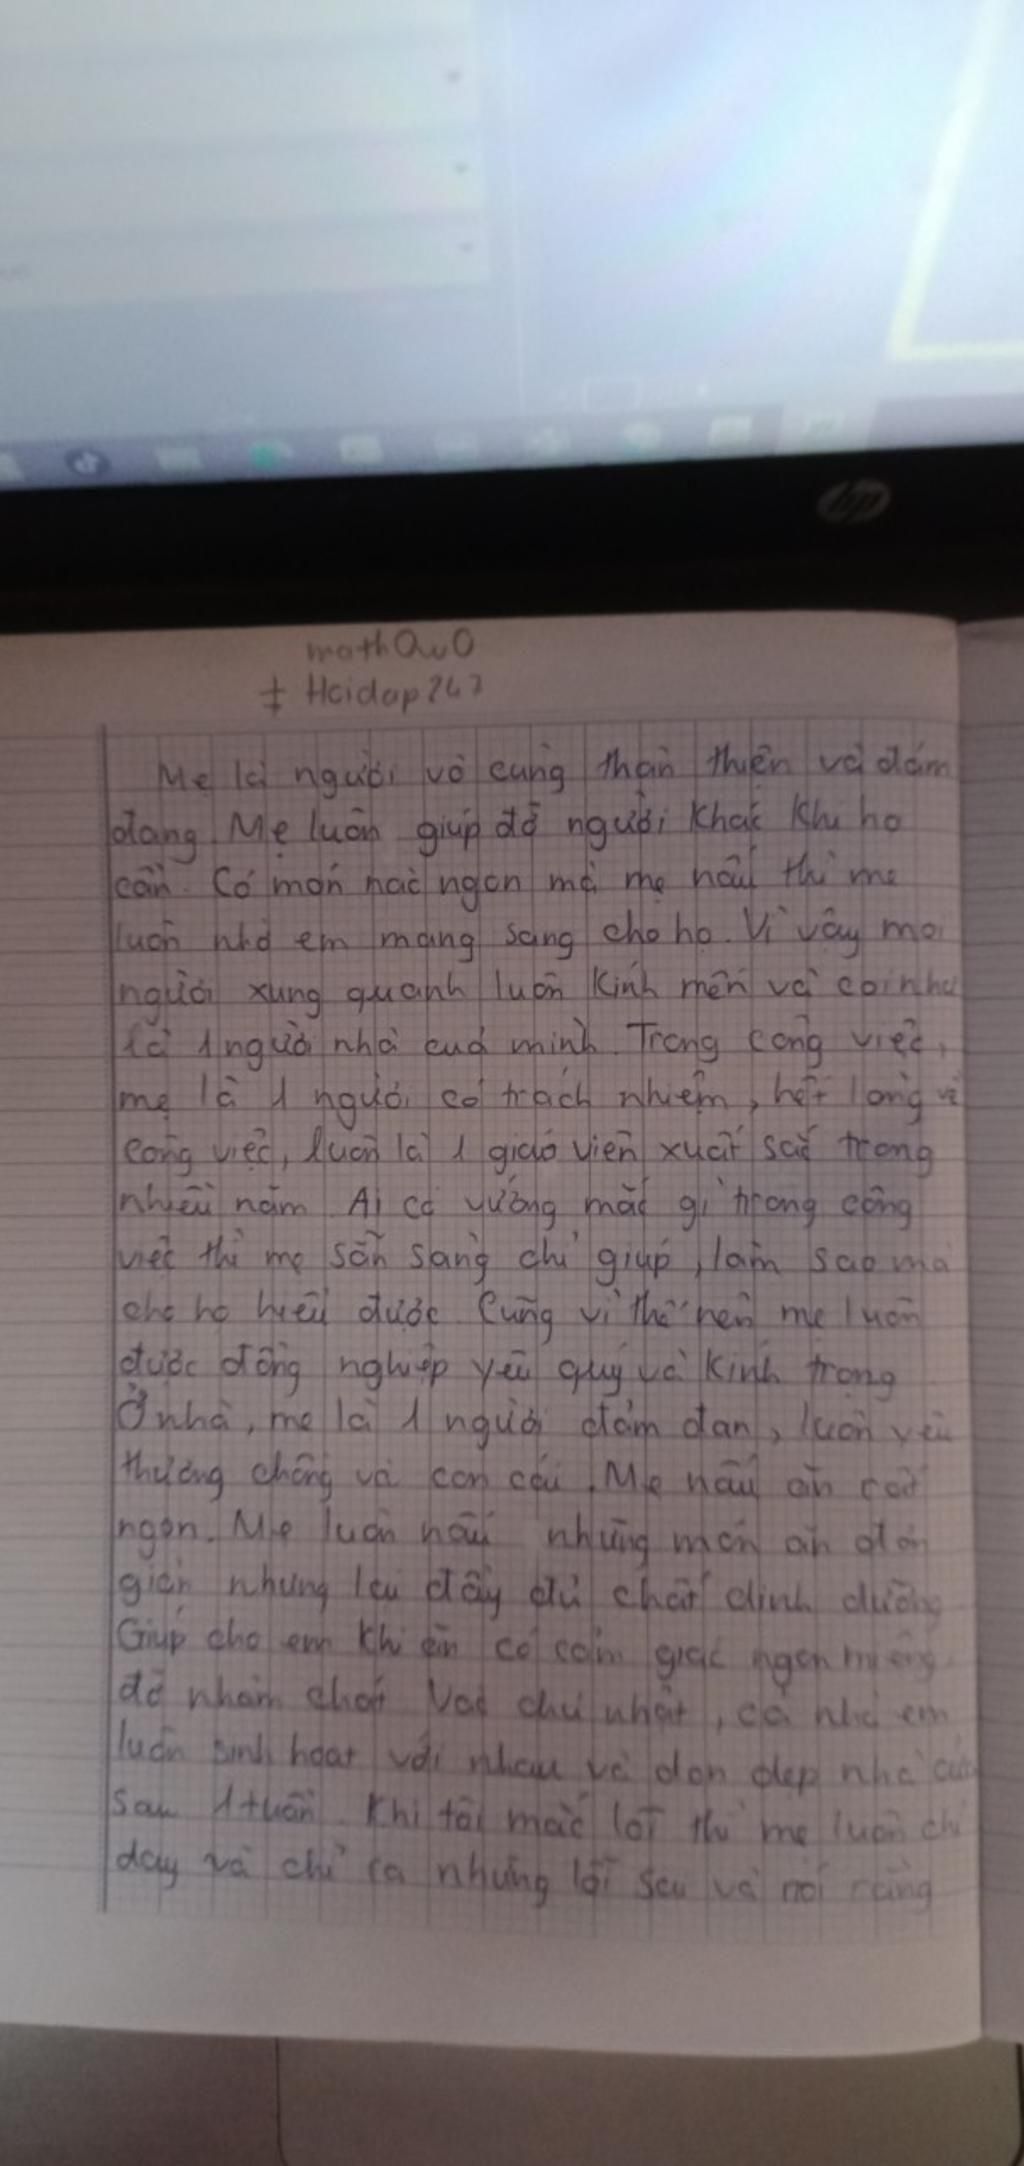 mathQwO
+ Hoidap247
Mẹ là người vô cùng thân thiện và đảm
đang. Mẹ luôn giúp đỡ người khác khi họ
cần. Có món nào ngon mà mẹ nấu thì mẹ
luôn nhờ em mang sang cho họ. Vì vậy mọi
người xung quanh luôn kính mến và coi như
là 1 người nhà của mình. Trong công việc,
mẹ là 1 người có trách nhiệm, hết lòng vì
công việc, luôn là 1 giáo viên xuất sắc trong
nhiều năm. Ai có vướng mắc gì trong công
việc thì mẹ sẵn sàng chỉ giúp, làm sao mà
cho họ hiểu được. Cũng vì thế nên mẹ luôn
được đồng nghiệp yêu quý và kính trọng
Ở nhà, mẹ là 1 người đảm đan, luôn yêu
thương chồng và con cái. Mẹ nấu ăn rất
ngon. Mẹ luôn nấu những món ăn đơn
giản nhưng lại đầy đủ chất dinh dưỡng
Giúp cho em khi ăn có cảm giác ngon miệng
đỡ nhàm chán. Vào chủ nhật, cả nhà em
luôn sinh hoạt với nhau và dọn dẹp nhà cửa
sau 1 tuần. Khi tôi mắc lỗi thì mẹ luôn chỉ
dạy và chỉ ra những lỗi sai và nói rằng
hp